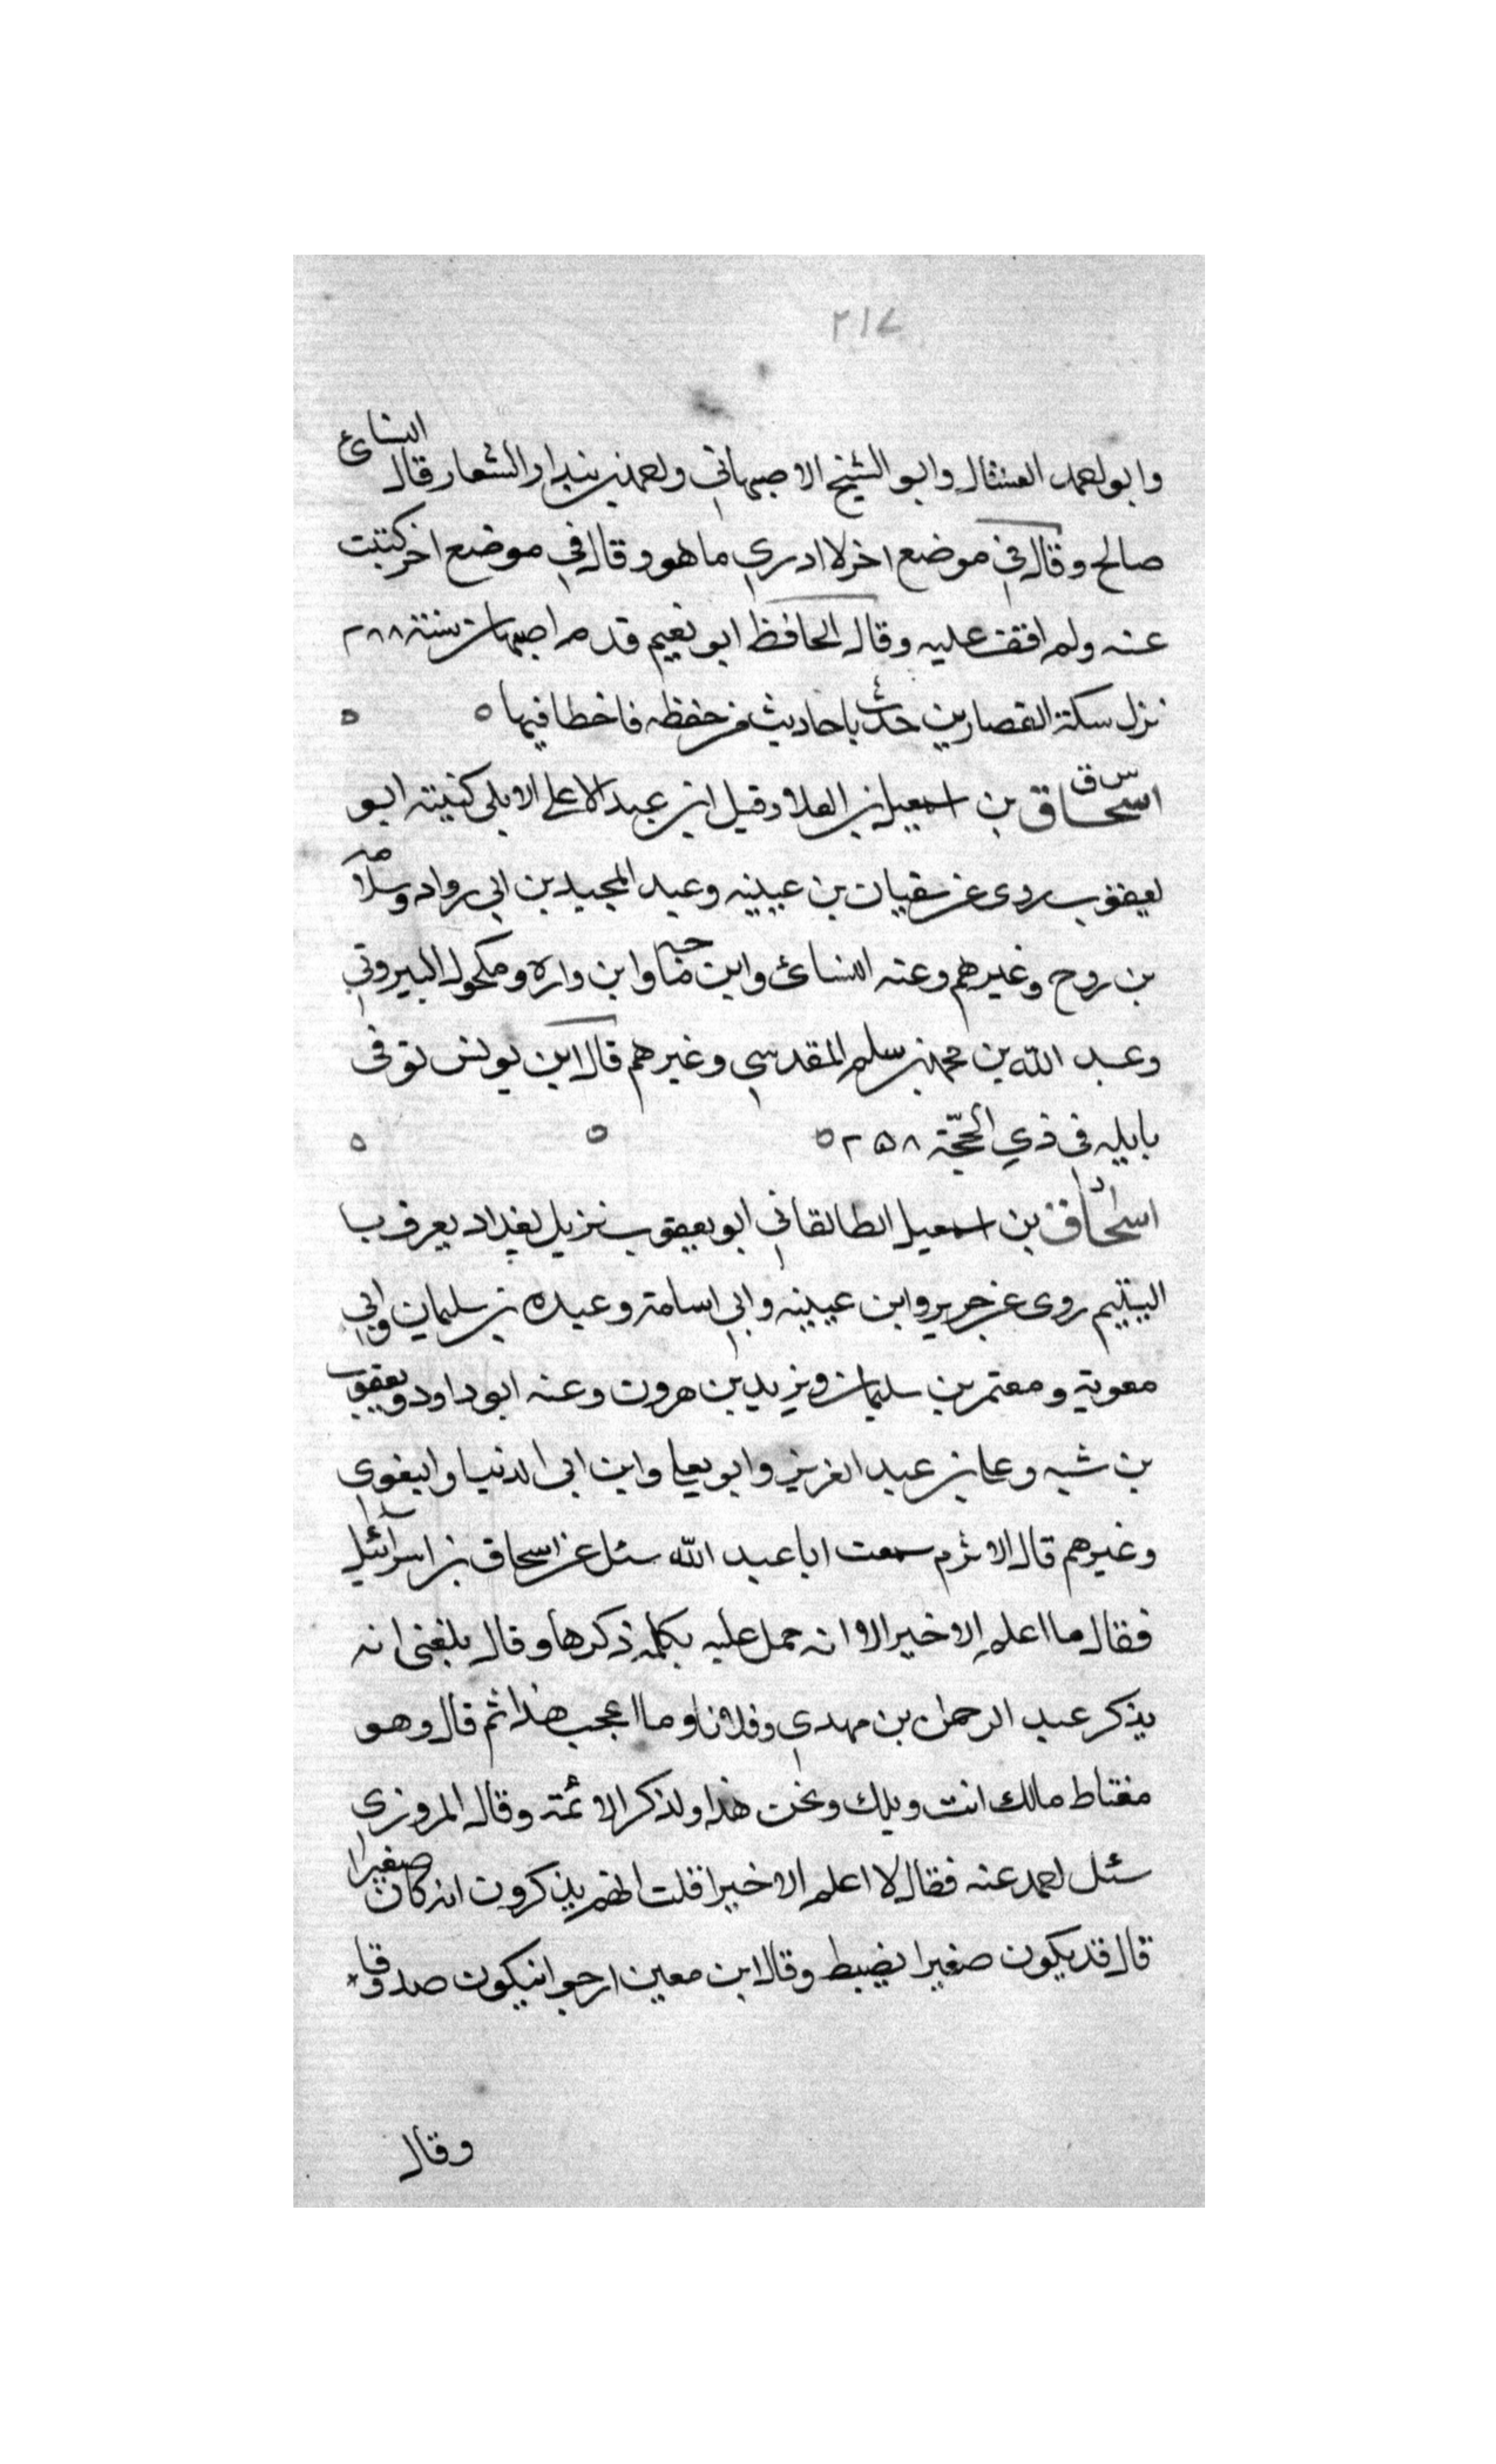 ٢١٧
وابو احمد العسال وابو الشيخ الاصبهاني واحمد بن بندار الشعار قال النسائي
صالح وقال في موضع اخر لا ادري ما هو وقال في موضع اخر كتبت
عنه ولم اقف عليه وقال الحافظ ابو نعيم قدم اصبهان سنة ٢٨٨
نزل سكة القصارين حدث باحاديث من حفظه فاخطا فيها ه ه
س ق
اسحاق بن اسمعيل بن العلا وقيل ابن عبد الاعلى الايلي كنيته ابو
يعقوب روى عن سفيان بن عيينه وعبد المجيد بن ابي رواد وسلامه
بن روح وغيرهم وعنه النسائ وابن ماجه وابن واره ومكحول البيروتي
وعبد الله بن محمد بن سلم المقدسي وغيرهم قال ابن يونس توفى
بايله في ذي الحجة ٢٥٨ ه ه ه
د
اسحاق بن اسمعيل الطالقاني ابو يعقوب نزيل بغداد يعرف ب
اليتيم روى عن جرير وابن عيينه وابي اسامة وعبده بن سليمان وابي
معوية ومعتمر بن سليمان ويزيد بن هرون وعنه ابو داود ويعقوب
بن شبه وعلى بن عبد العزيز وابو يعلى وابن ابى الدنيا والبغوي
وغيرهم قال الاثرم سمعت ابا عبد الله سئل عن اسحاق بن اسرآئيل
فقال ما اعلم الا خيرا الا انه حمل عليه بكلمه ذكرها وقال بلغنى انه
يذكر عبد الرحمن بن مهدي وفلانا وما اعجب هذا ثم قال وهو
مغتاط مالك انت ويلك ونحن هذا ولذكر الائمة وقال المروزي
سئل احمد عنه فقال لا اعلم الا خيرا قلت انهم يذكرون انه كان صغيرا
قال قد يكون صغيرا يضبط وقال ابن معين ارجو انيكون صدوقا
وقال